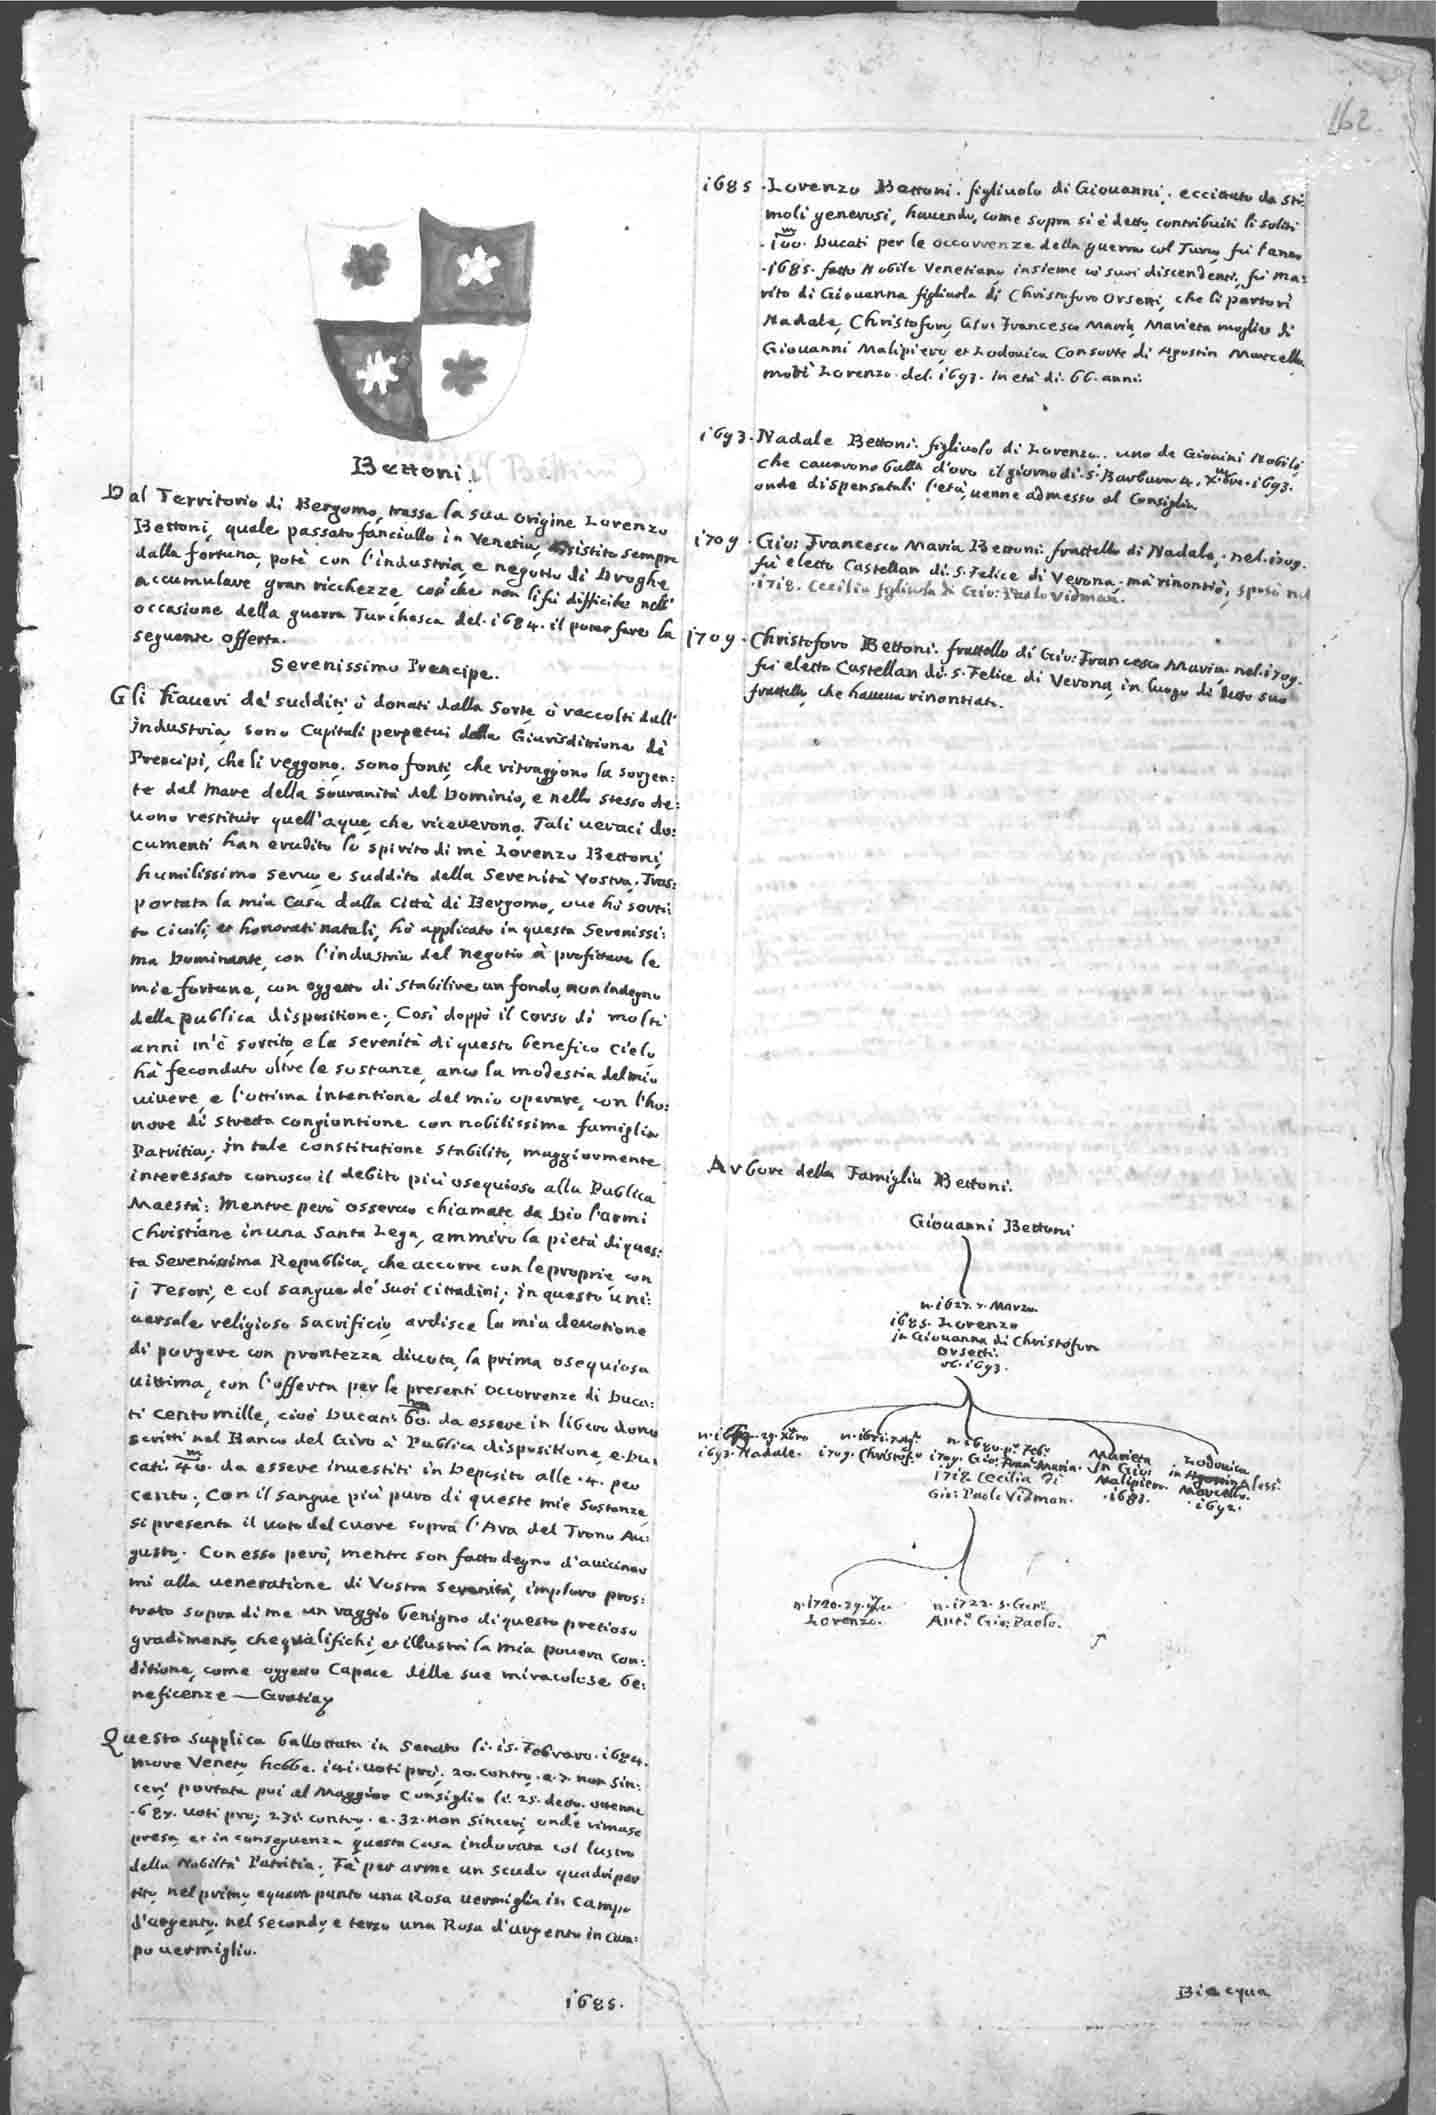 162
Bettoni
Dal Territorio di Bergomo, trasse la sua origine Lorenzo
Bettoni, quale passato fanciullo in Venetia, assistito sempre
dalla fortuna, potè con l'industria, e negotio di Droghe
accumulare gran ricchezze, così che non li fù difficile nell'
occasione della guerra Turchesca del. 1684. il poter fare la
seguente offerta.
Serenissimo Prencipe.
Gli haueri de' sudditi, ò donati dalla Sorte, ò raccolti dall'
industria, sono Capitali perpetui della Giurisditione de
Prencipi, che li reggono, sono fonti, che ritraggono la sorgen:
te dal mare della souranità del Dominio, e nello stesso de:
uono restituir quell'aque, che riceuerono. Tali ueraci do:
cumenti han erudito lo spirito di me Lorenzo Bettoni,
humilissimo seruo, e suddito della Serenità Vostra. Tras:
portata la mia Casa dalla Città di Bergomo, oue hò sorti:
to Ciuili, et honorati natali, hò applicato in questa Serenissi:
ma Dominante, con l'industria del negotio à profittare le
mie fortune, con oggetto di stabilire un fondo, non indegno
della publica dispositione; Così doppò il corso di molti
anni m'è sortito, e la serenità di questo benefico Cielo
hà fecondato oltre le sostanze, anco la modestia del mio
uiuere, e l'ottima intentione del mio operare, con l'ho:
nore di stretta congiontione con nobilissima famiglia
Patritia; in tale constitutione stabilito, maggiormente
interessato conosco il debito più osequioso alla Publica
Maestà: Mentre però osseruo chiamate da Dio l'armi
Christiane in una Santa Lega, ammiro la pietà di ques:
ta Serenissima Republica, che accorre con le proprie, con
i Tesori, e col sangue de' suoi Cittadini; in questo uni:
uersale religioso sacrificio, ardisce la mia deuotione
di porgere con prontezza diuota, la prima osequiosa
uittima, con l'offerta per le presenti occorrenze di Duca:
ti cento mille, cioè Ducati 60. da essere in libero dono
scritti nel Banco del Giro à Publica dispositione, e Du:
cati. 40. da essere inuestiti in Deposito alle. 4. per
cento; Con il sangue più puro di queste mie Sostanze
si presenta il uoto del cuore sopra l'Ara del Trono Au:
gusto. Con esso però, mentre son fatto degno d'auicinar
mi alla ueneratione di Vostra Serenità, imploro pros:
trato sopra di me un raggio benigno di questo pretioso
gradimento, che qualifichi, et illustri la mia pouera con:
ditione, come oggetto Capace delle sue miracolose be:
neficenze — Gratia
Questa supplica ballottata in Senato li. 15. Febraro. 1684.
more Veneto, hebbe. 141. uoti prò, 20. contro. e. 7. non sin:
ceri, portata poi al Maggior Consiglio li. 25. detto, ottenne
.687. uoti prò; 231. contro, e. 32. non sinceri, onde rimase
presa, et in conseguenza questa Casa indorata col lustro
della Nobiltà Patritia; Fà per arme un scudo quadripar
tito, nel primo, e quarto punto una Rosa uermiglia in Campo
d'argento, nel secondo, e terzo una Rosa d'argento in cam:
po uermiglio.
1685.
1685. Lorenzo Bettoni. figliuolo di Giouanni, eccitato da sti:
moli generosi, hauendo, come sopra si è detto, contribuiti li soliti
.100. Ducati per le occorrenze della guerra col Turco, fù l'anno
.1685. fatto Nobile Venetiano, insieme co' suoi discendenti, fù ma:
rito di Giouanna figliuola di Christoforo Orsetti, che li partorì
Nadale, Christoforo, Gio: Francesco Maria, Marieta moglie di
Giouanni Malipiero, et Lodouica Consorte di Agostin Marcello.
morì Lorenzo del. 1693. in età di. 66. anni.
1693. Nadale Bettoni. figliuolo di Lorenzo. uno de Giouini Nobili,
che cauarono balla d'oro il giorno di. S. Barbara 4. Xmbre. 1693.
onde dispensatali l'età, uenne admesso al Consiglio.
1709. Gio: Francesco Maria Bettoni, frattello di Nadale, nel. 1709.
fù eletto Castellan di. S. Felice di Verona, mà rinontiò, sposò nel
.1718. Cecilia figliuola di Gio: Paolo Vidman.
1709. Christoforo Bettoni. frattello di Gio: Francesco Maria. nel. 1709.
fù eletto Castellan di. S. Felice di Verona, in luogo di detto suo
frattello, che haueua rinontiato.
Arbore della Famiglia Bettoni.
Giouanni Bettoni
n. 1627. 7. Marzo.
1685. Lorenzo
in Giouanna di Christoforo
Orsetti.
ob. 1693.
1693. Nadale.
1709. Christoforo
n. 1680. pº. Febº.
1709. Gio: Franº Maria.
1718. Cecilia di
Gio: Paolo Vidman.
Marieta
in Gio:
Malipiero.
Lodouica
in Agostin Aless:
Marcello.
.1692.
Lorenzo.
n. 1722. 5. Genº.
Antº. Gio: Paolo.
Biacqua